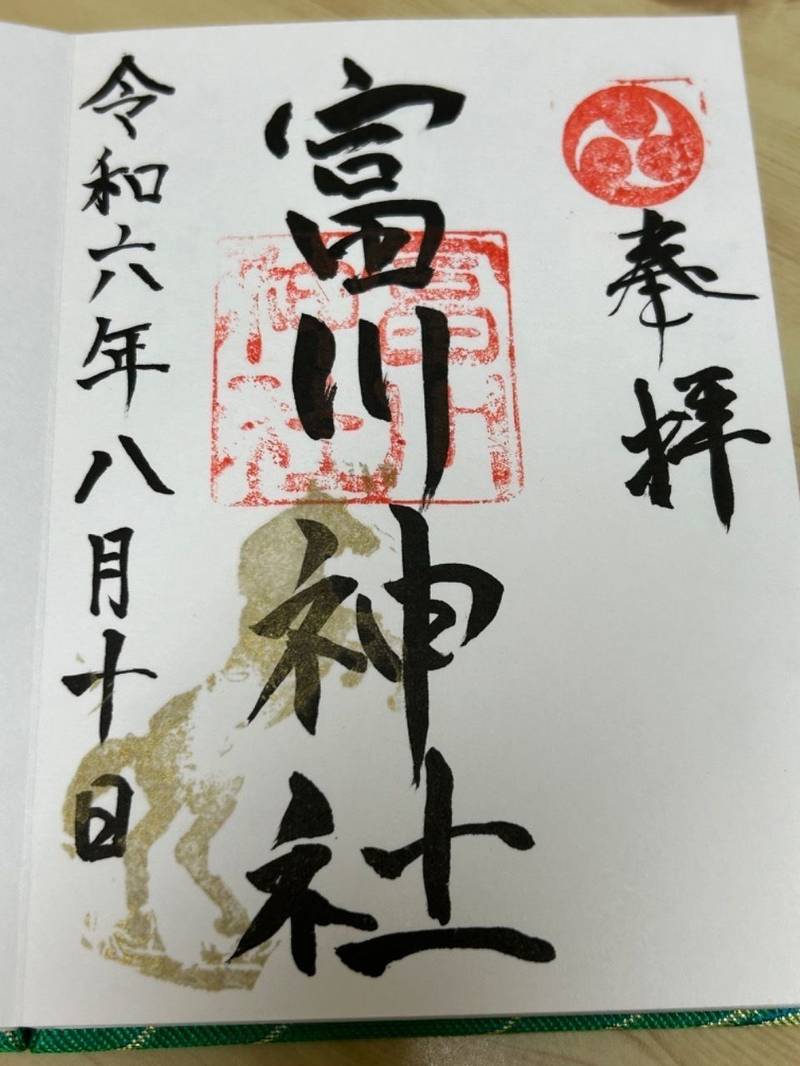 奉拝
富川神社
富川
神社
令和六年八月十日